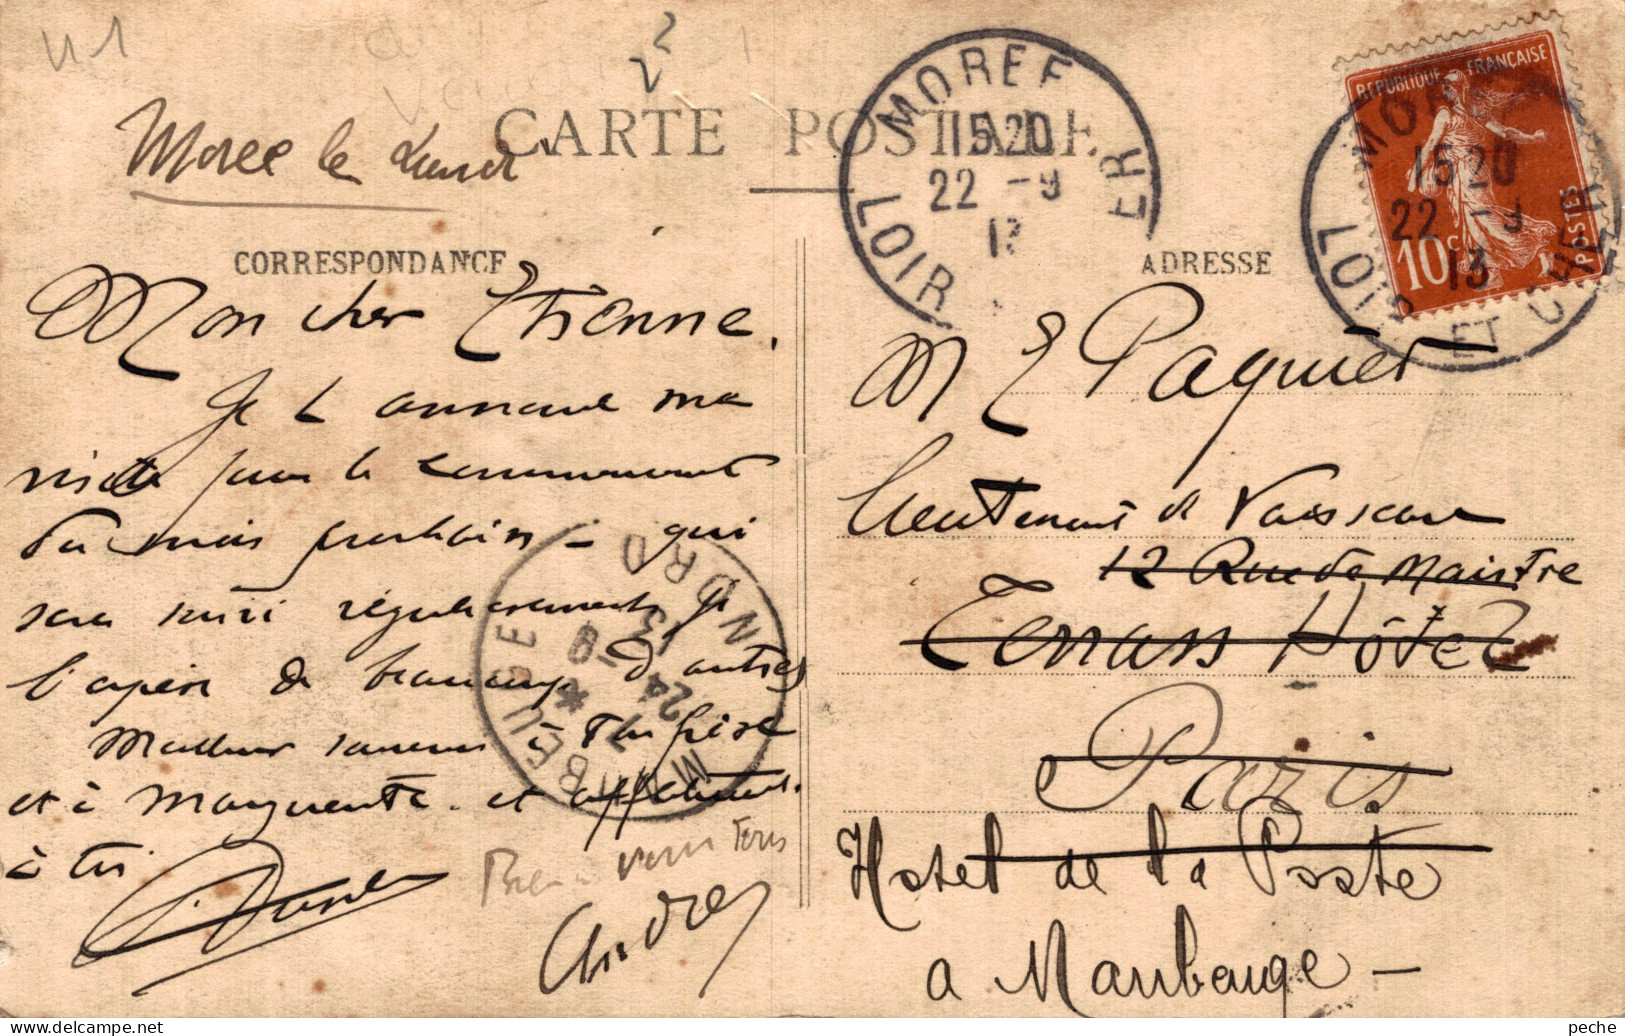 41
22
CARTE POSTALE
Morée le Lundi
CORRESPONDANCE
ADRESSE
MORÉE
15 20
22 - 9
13
LOIR ET CHER
REPUBLIQUE FRANÇAISE
10c
POSTES
MORÉE
15 20
22 - 9
13
LOIR ET CHER
Mon cher Etienne,
Je t'annonce ma
visite pour le commencement
du mois prochain - qui
sera suivi régulièrement, je
l'espère de beaucoup d'autres
Meilleur souvenir à ton frère
et à Marguerite. et affectueus.
à toi
Bien à vous tous
André
MAUBEUGE
7
24 - 9
13
NORD
M E Paquier
Lieutenant de Vaisseau
12 Rue de Maistre
Terrass Hôtel
Paris
Hotel de la Poste
a Maubeuge -
peche
delcampe.net